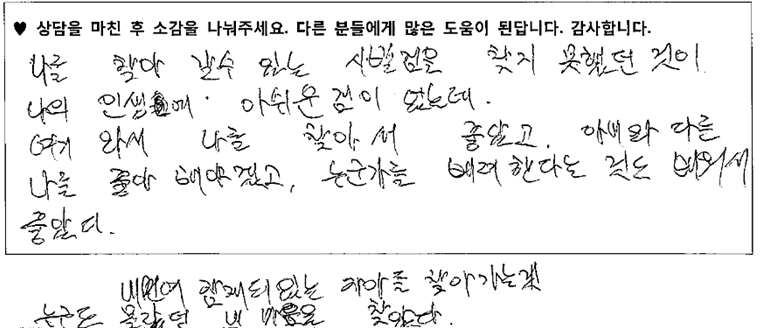 ♥ 상담을 마친 후 소감을 나눠주세요. 다른 분들에게 많은 도움이 된답니다. 감사합니다.
나를 찾아 갈수 있는 시발점을 찾지 못했던 것이
나의 인생에 아쉬운 점이 었는데.
여기 와서 나를 찾아서 좋았고, 아버와 다른
나를 좋아 해야겠고, 누군가를 배려한다는 것도 배워서
좋았다.
내면에 함재되있는 자아를 찾아가는것
누군도 몰랐던 내 마음을 찾았다.